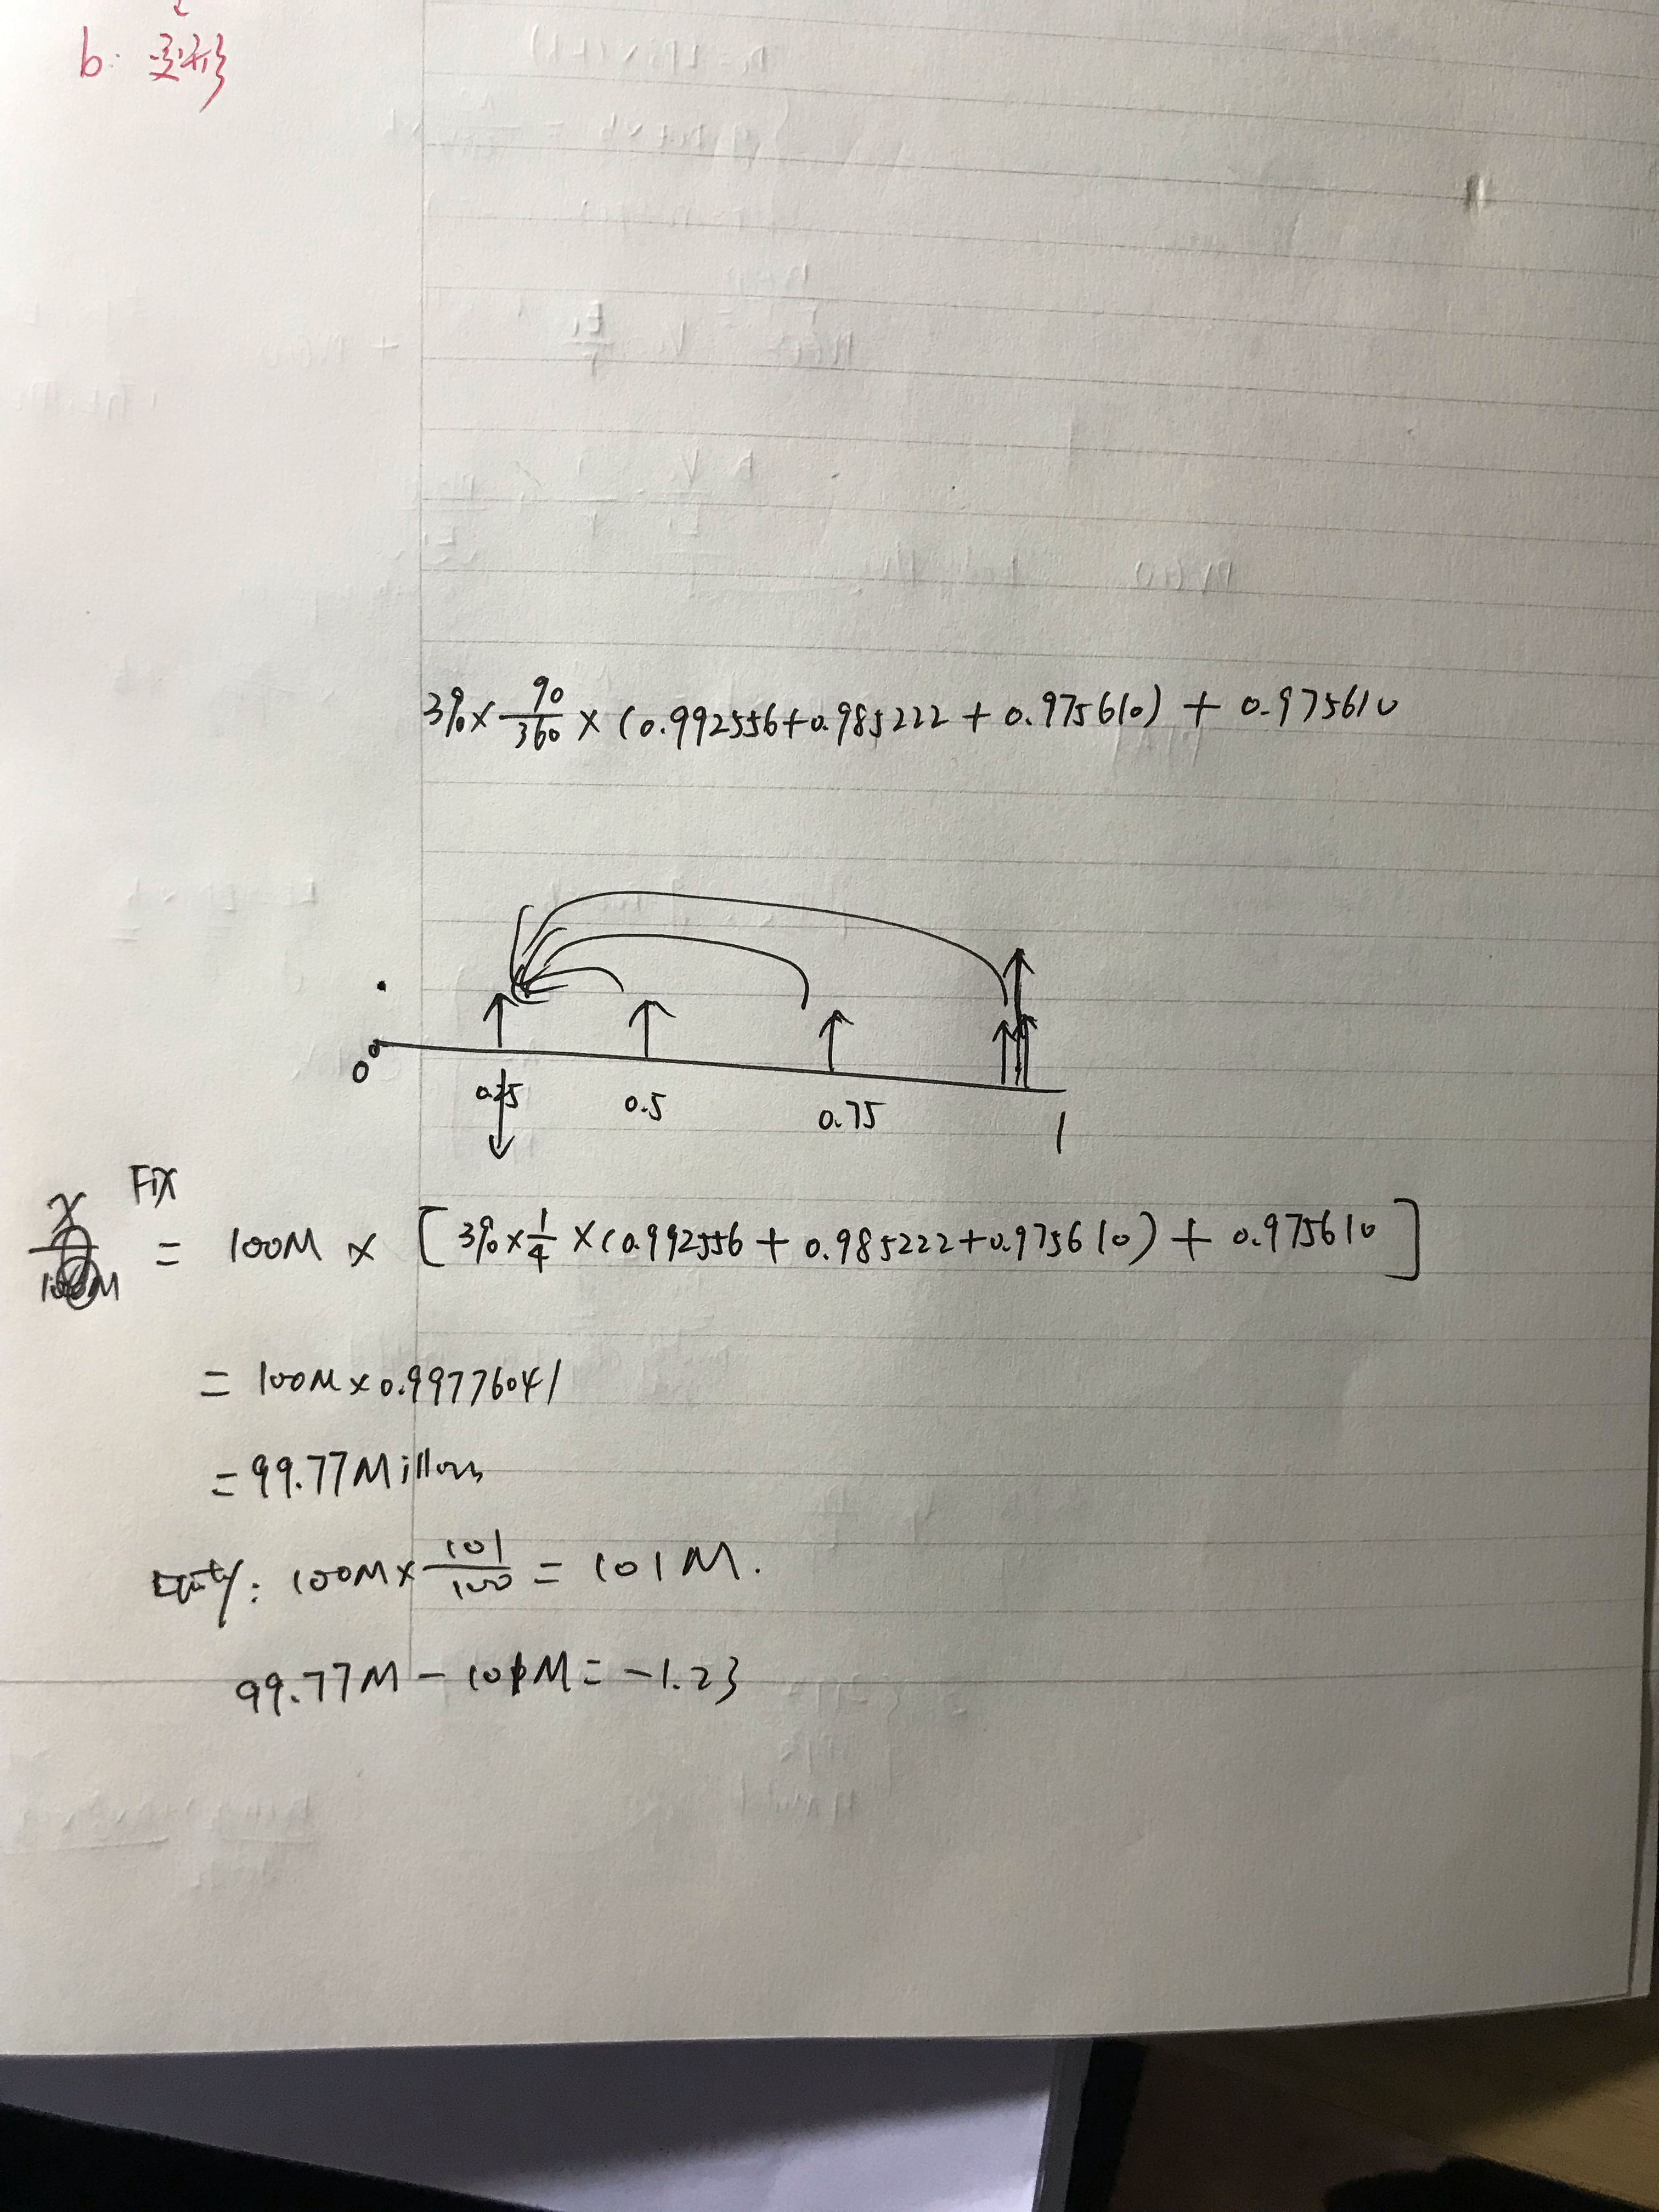 b: 变形
3% × 90/360 × (0.992556+0.985222 + 0.975610) + 0.975610
0 0.25 0.5 0.75 1
FIX
x/100M = 100M × [3% × 1/4 × (0.992556 + 0.985222+0.975610) + 0.975610]
= 100M × 0.99776041
= 99.77 Millons
Equity: 100M × 101/100 = 101M.
99.77M - 101M = -1.23